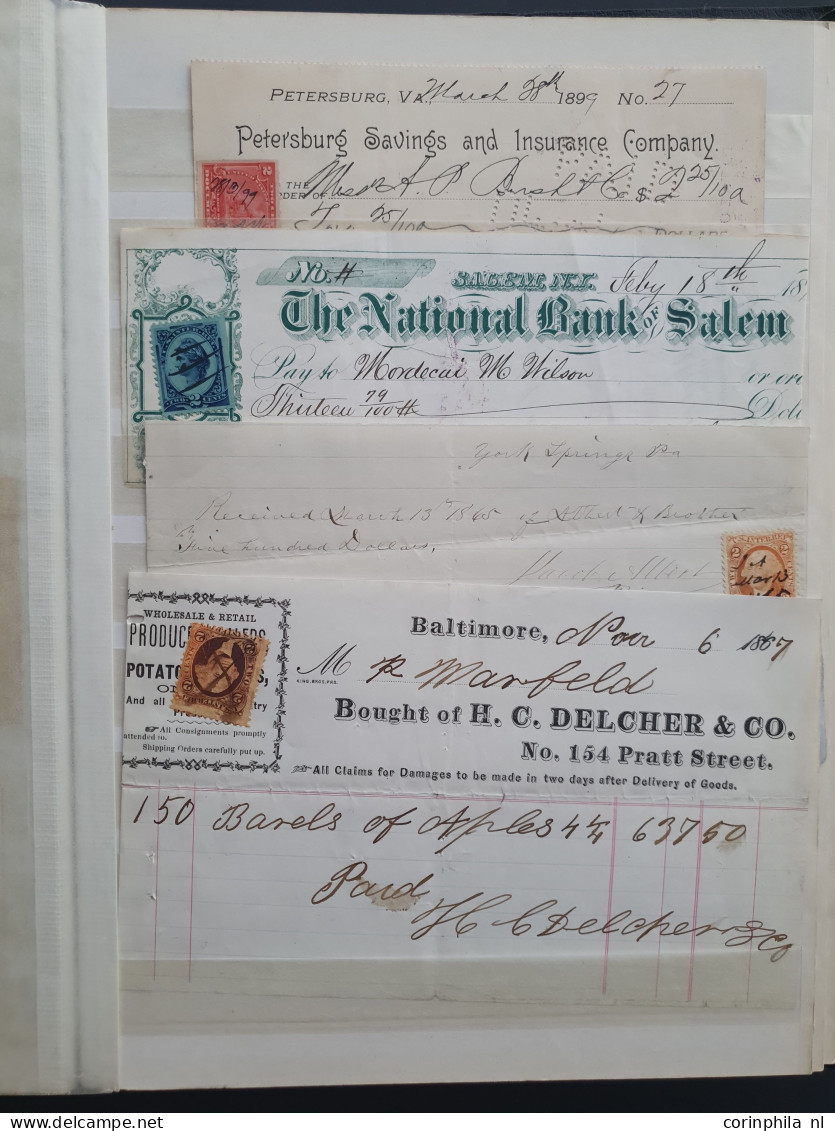 PETERSBURG, VA. March 28th 1899 No. 27
Petersburg Savings and Insurance Company.
THE
ORDER OF A. P. & Co $ 2 25/100
Two 25/100 DOLLARS
28/3/99
2
No. H SALEM, N.Y. Feby 18th 18
The National Bank OF Salem
Pay to Mordecai M Wilson or ord
Thirteen 79/100 Doll
2 CENTS
York Springs Pa
Received March 13th 1865 of & Brother
Five hundred Dollars,
Jacob
U.S. INTER. REV.
2 2
Mar 13
WHOLESALE & RETAIL
PRODUCE
POTATO
And all
All Consignments promptly
attended to.
Shipping Orders carefully put up.
Baltimore, Nov 6 1867
M Marfeld
KING BROS. PRS.
Bought of H. C. DELCHER & CO.
No. 154 Pratt Street.
All Claims for Damages to be made in two days after Delivery of Goods.
150 Barels of Aples 4 1/4 637 50
Paid
H C Delcher & Co
www.delcampe.net corinphila nl